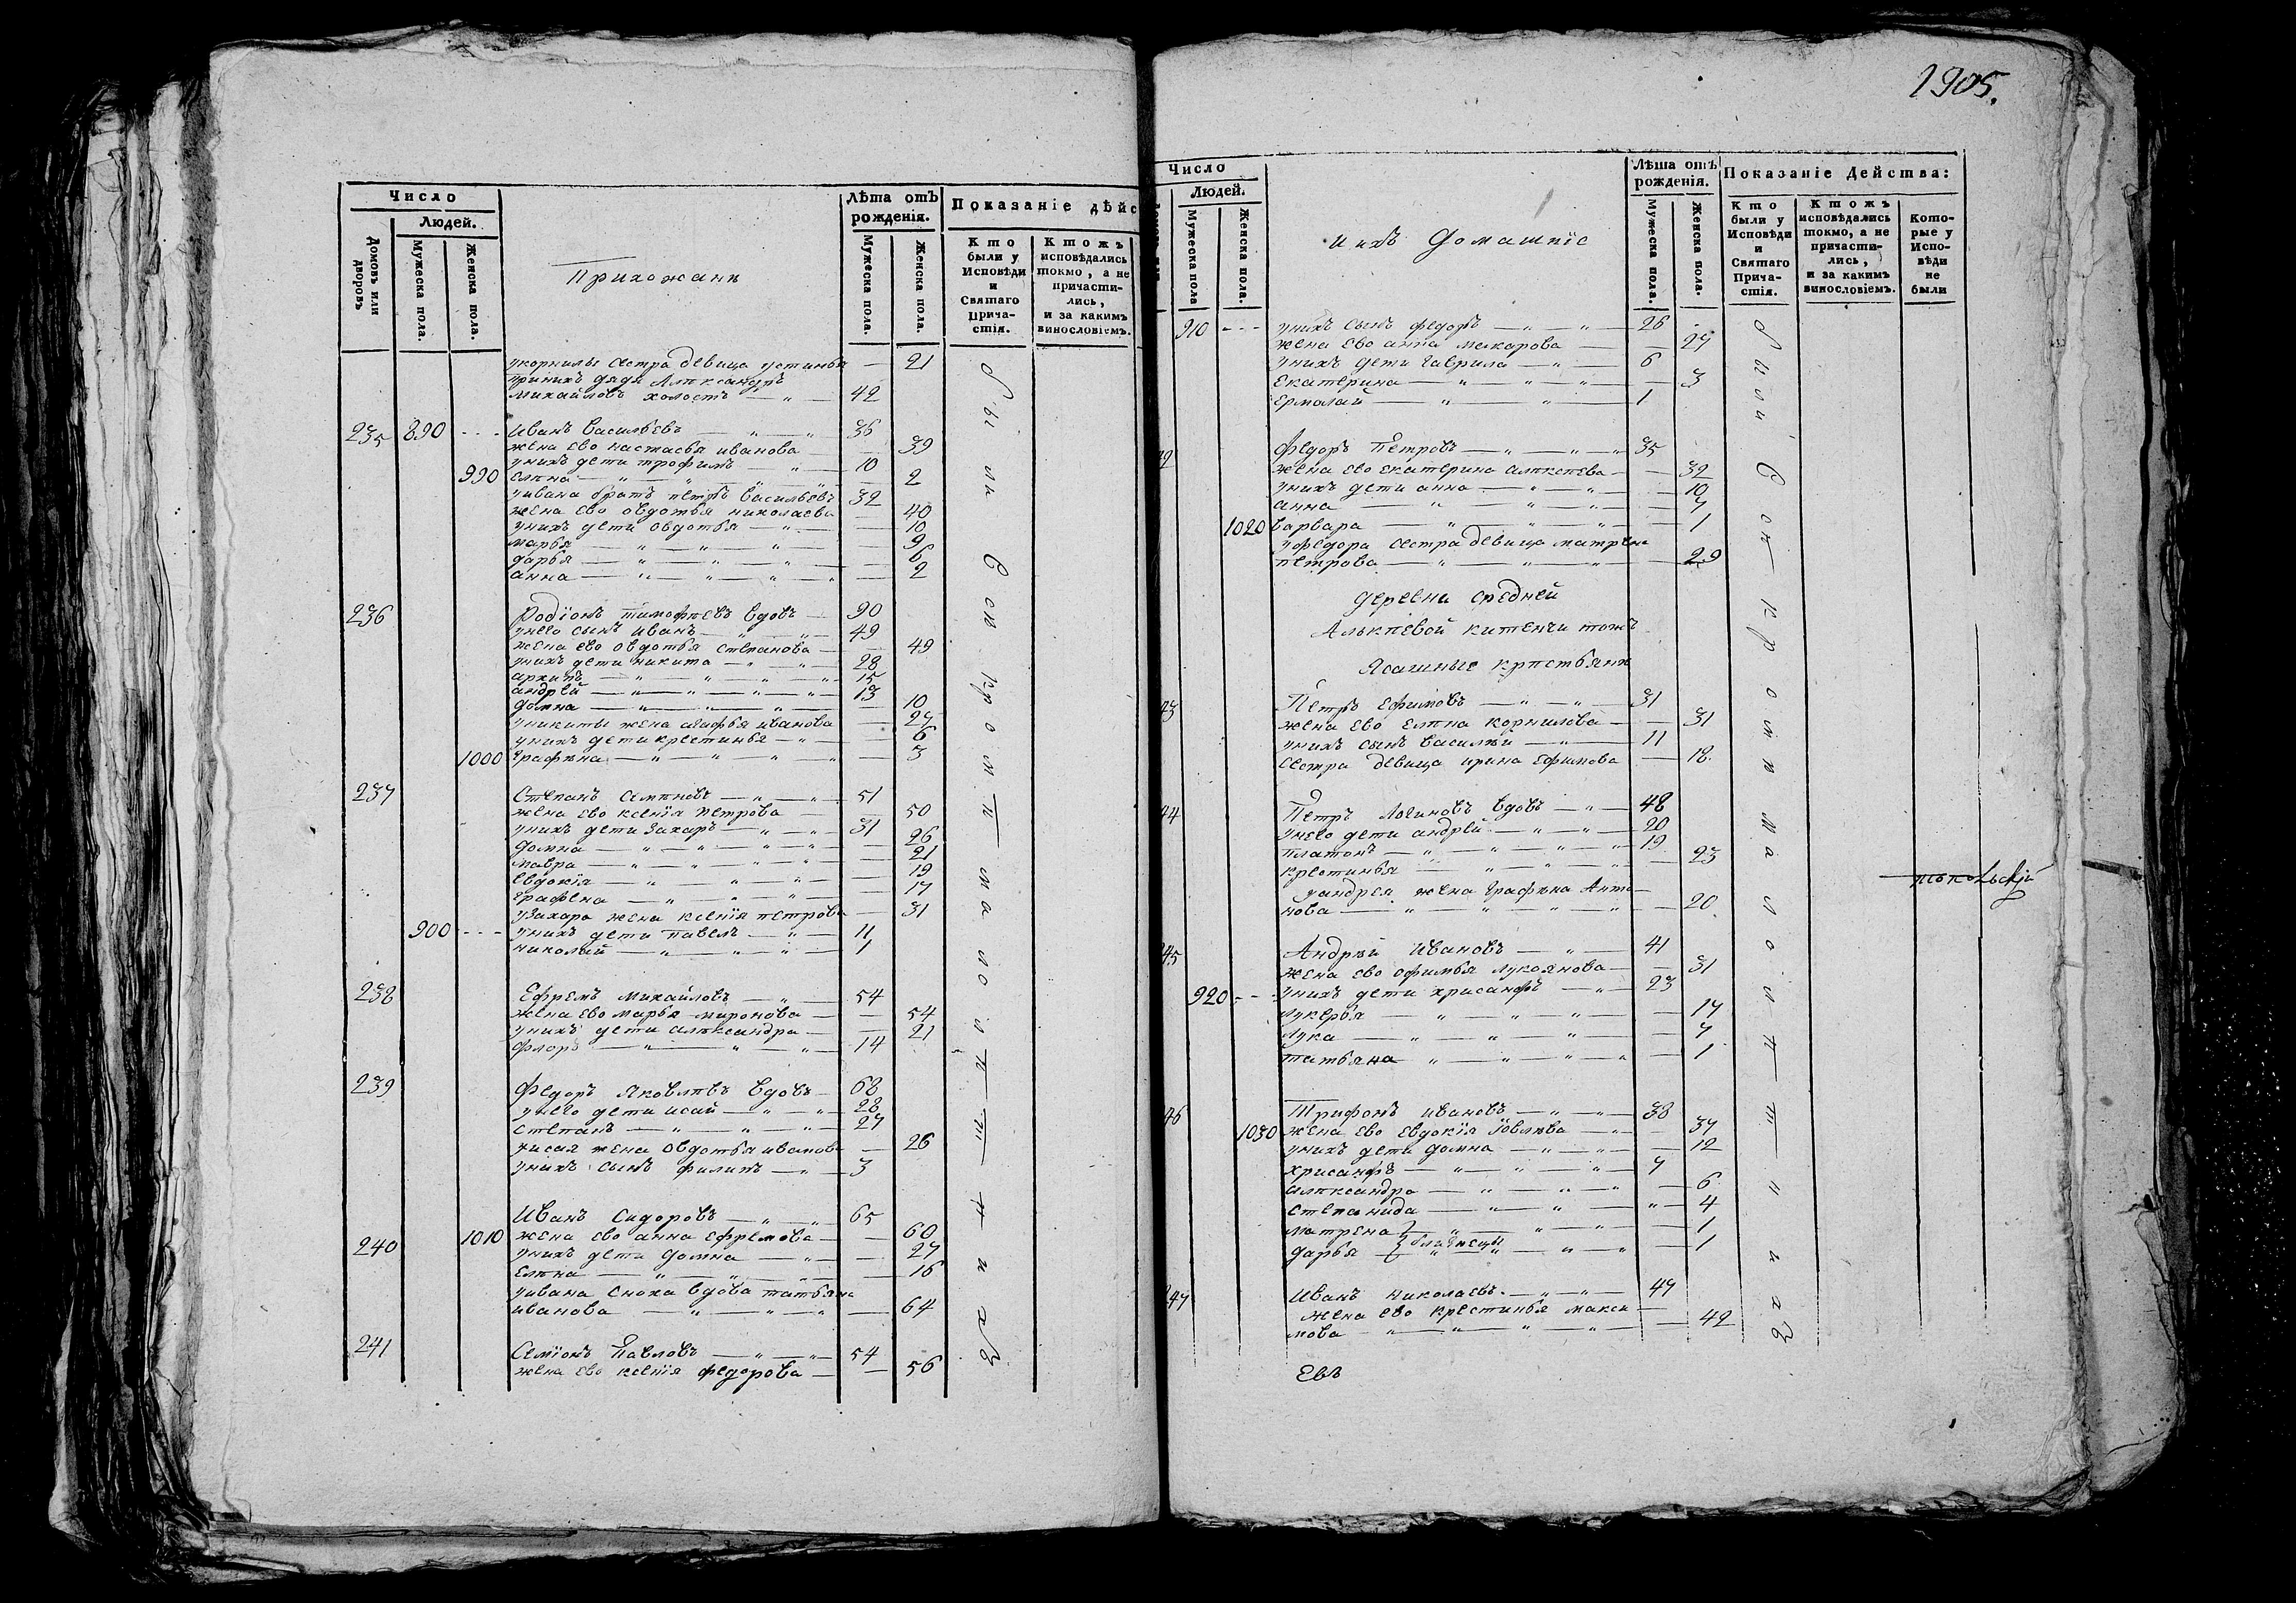 1905.
Число
Людей.
Домовъ или дворовъ
Мужеска пола.
Женска пола.
Прихожанѣ
Лѣта отъ рожденія.
Мужеска пола.
Женска пола.
Показаніе дѣйс
Кто были у Исповѣди и Святаго Прича-стія.
Ктожъ исповѣдались токмо, а не причасти-лись, и за какимъ винословіемъ.
укорнилы сестра девица устинья — 21
принихъ дядя Алѣксандръ
михайловъ холостъ — 42
235 890 Иванъ Васильевъ — 36
жена ево настасья иванова — 39
унихъ дети трофимъ — 10
990 елѣна — 2
уивана братъ петръ васильевъ 32
жена ево овдотья николаева 40
унихъ дети овдотья — 10
марья — 9
дарья — 6
анна — 2
236 Родїонъ тимофѣевъ вдовъ — 90
унего сынъ иванъ — 49
жена ево овдотья степанова — 49
унихъ дети никита — 28
архипъ — 15
андрей — 13
домна — 10
уникиты жена агафья иванова — 27
унихъ дети крестинья — 6
1000 Графѣна — 3
237 Степанъ Семѣновъ — 51
жена ево ксенїя петрова — 50
унихъ дети Захаръ — 31
домна — 26
мавра — 21
Евдокїя — 19
Графена — 17
узахара жена ксенїя петрова — 31
900 унихъ дети павелъ — 11
николай — 1
238 Ефремъ Михайловъ — 54
жена ево марья миронова — 54
унихъ дети алѣксандра — 21
флоръ — 14
239 Федоръ Яковлѣвъ вдовъ — 68
унего дети исай — 28
степанъ — 27
уисая жена овдотья иванова — 26
унихъ сынъ филипъ — 3
Иванъ Сидоровъ — 65
240 1010 жена ево анна ефремова — 60
унихъ дети домна — 27
Елѣна — 16
уивана сноха вдова татьяна
иванова — 64
241 Семїонъ Павловъ — 54
жена ево ксенїя федорова — 56
были Въ кромѣ малолѣтнихъ
Число
Людей.
Мужеска пола
Женска пола.
ихъ домашнїе
Лѣта отъ рожденія.
Мужеска пола.
Женска пола.
Показаніе Действа:
Кто были у Исповѣди и Святаго Прича-стія.
Ктожъ исповѣдались токмо, а не причасти-лись, и за какимъ винословіемъ.
Кото-рые у Испо-вѣди не были
910 унихъ сынъ федоръ — 26
жена ево анна макарова — 27
унихъ дети гаврила — 6
Екатерина — 3
Ермолай — 1
42 Федоръ Петровъ — 35
жена ево екатерина алѣксѣева — 32
унихъ дети анна — 10
анна — 7
1020 варвара — 1
уфедора сестра девица матрена
петрова — 29
деревни средней
Алькѣевой китенчи тожъ
Ясашные крѣстьянѣ
43 Петръ Ефимовъ — 31
жена ево елѣна корнилова — 31
унихъ сынъ василѣи — 11
сестра девица ирина ефимова — 18.
44 Петръ Логиновъ вдовъ — 48
унего дети андрей — 20
платонъ — 19
крестинья — 23
уандрея жена Графѣна Анто-
нова — 20.
токольскїй
45 Андрѣй Ивановъ — 41
жена ево офимья лукоянова — 31
920 унихъ дети хрисанфъ — 23
лукерья — 17
лука — 7
татьяна — 1
46 Трифонъ ивановъ — 38
1030 жена ево евдокїя Їовлѣва — 37
унихъ дети домна — 12
хрисанфъ — 7
алѣксандра — 6
степанида — 4
матрена — 1
близнецы
дарья — 1
247 Иванъ николаевъ — 47
жена ево крестинья макси-
мова — 42
были Всѣ кромѣ малолѣтнихъ
Евъ